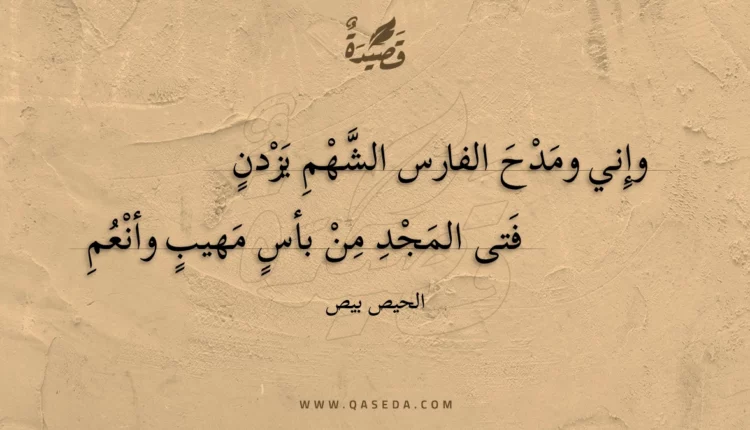 قَصِيْدَةٌ
وإِني ومَدْحَ الفارس الشَّهْمِ يَزْدنٍ
فَتى المَجْدِ مِنْ بأسٍ مَهيبٍ وأنْعُمِ
الحيص بيص
WWW.QASEDA.COM